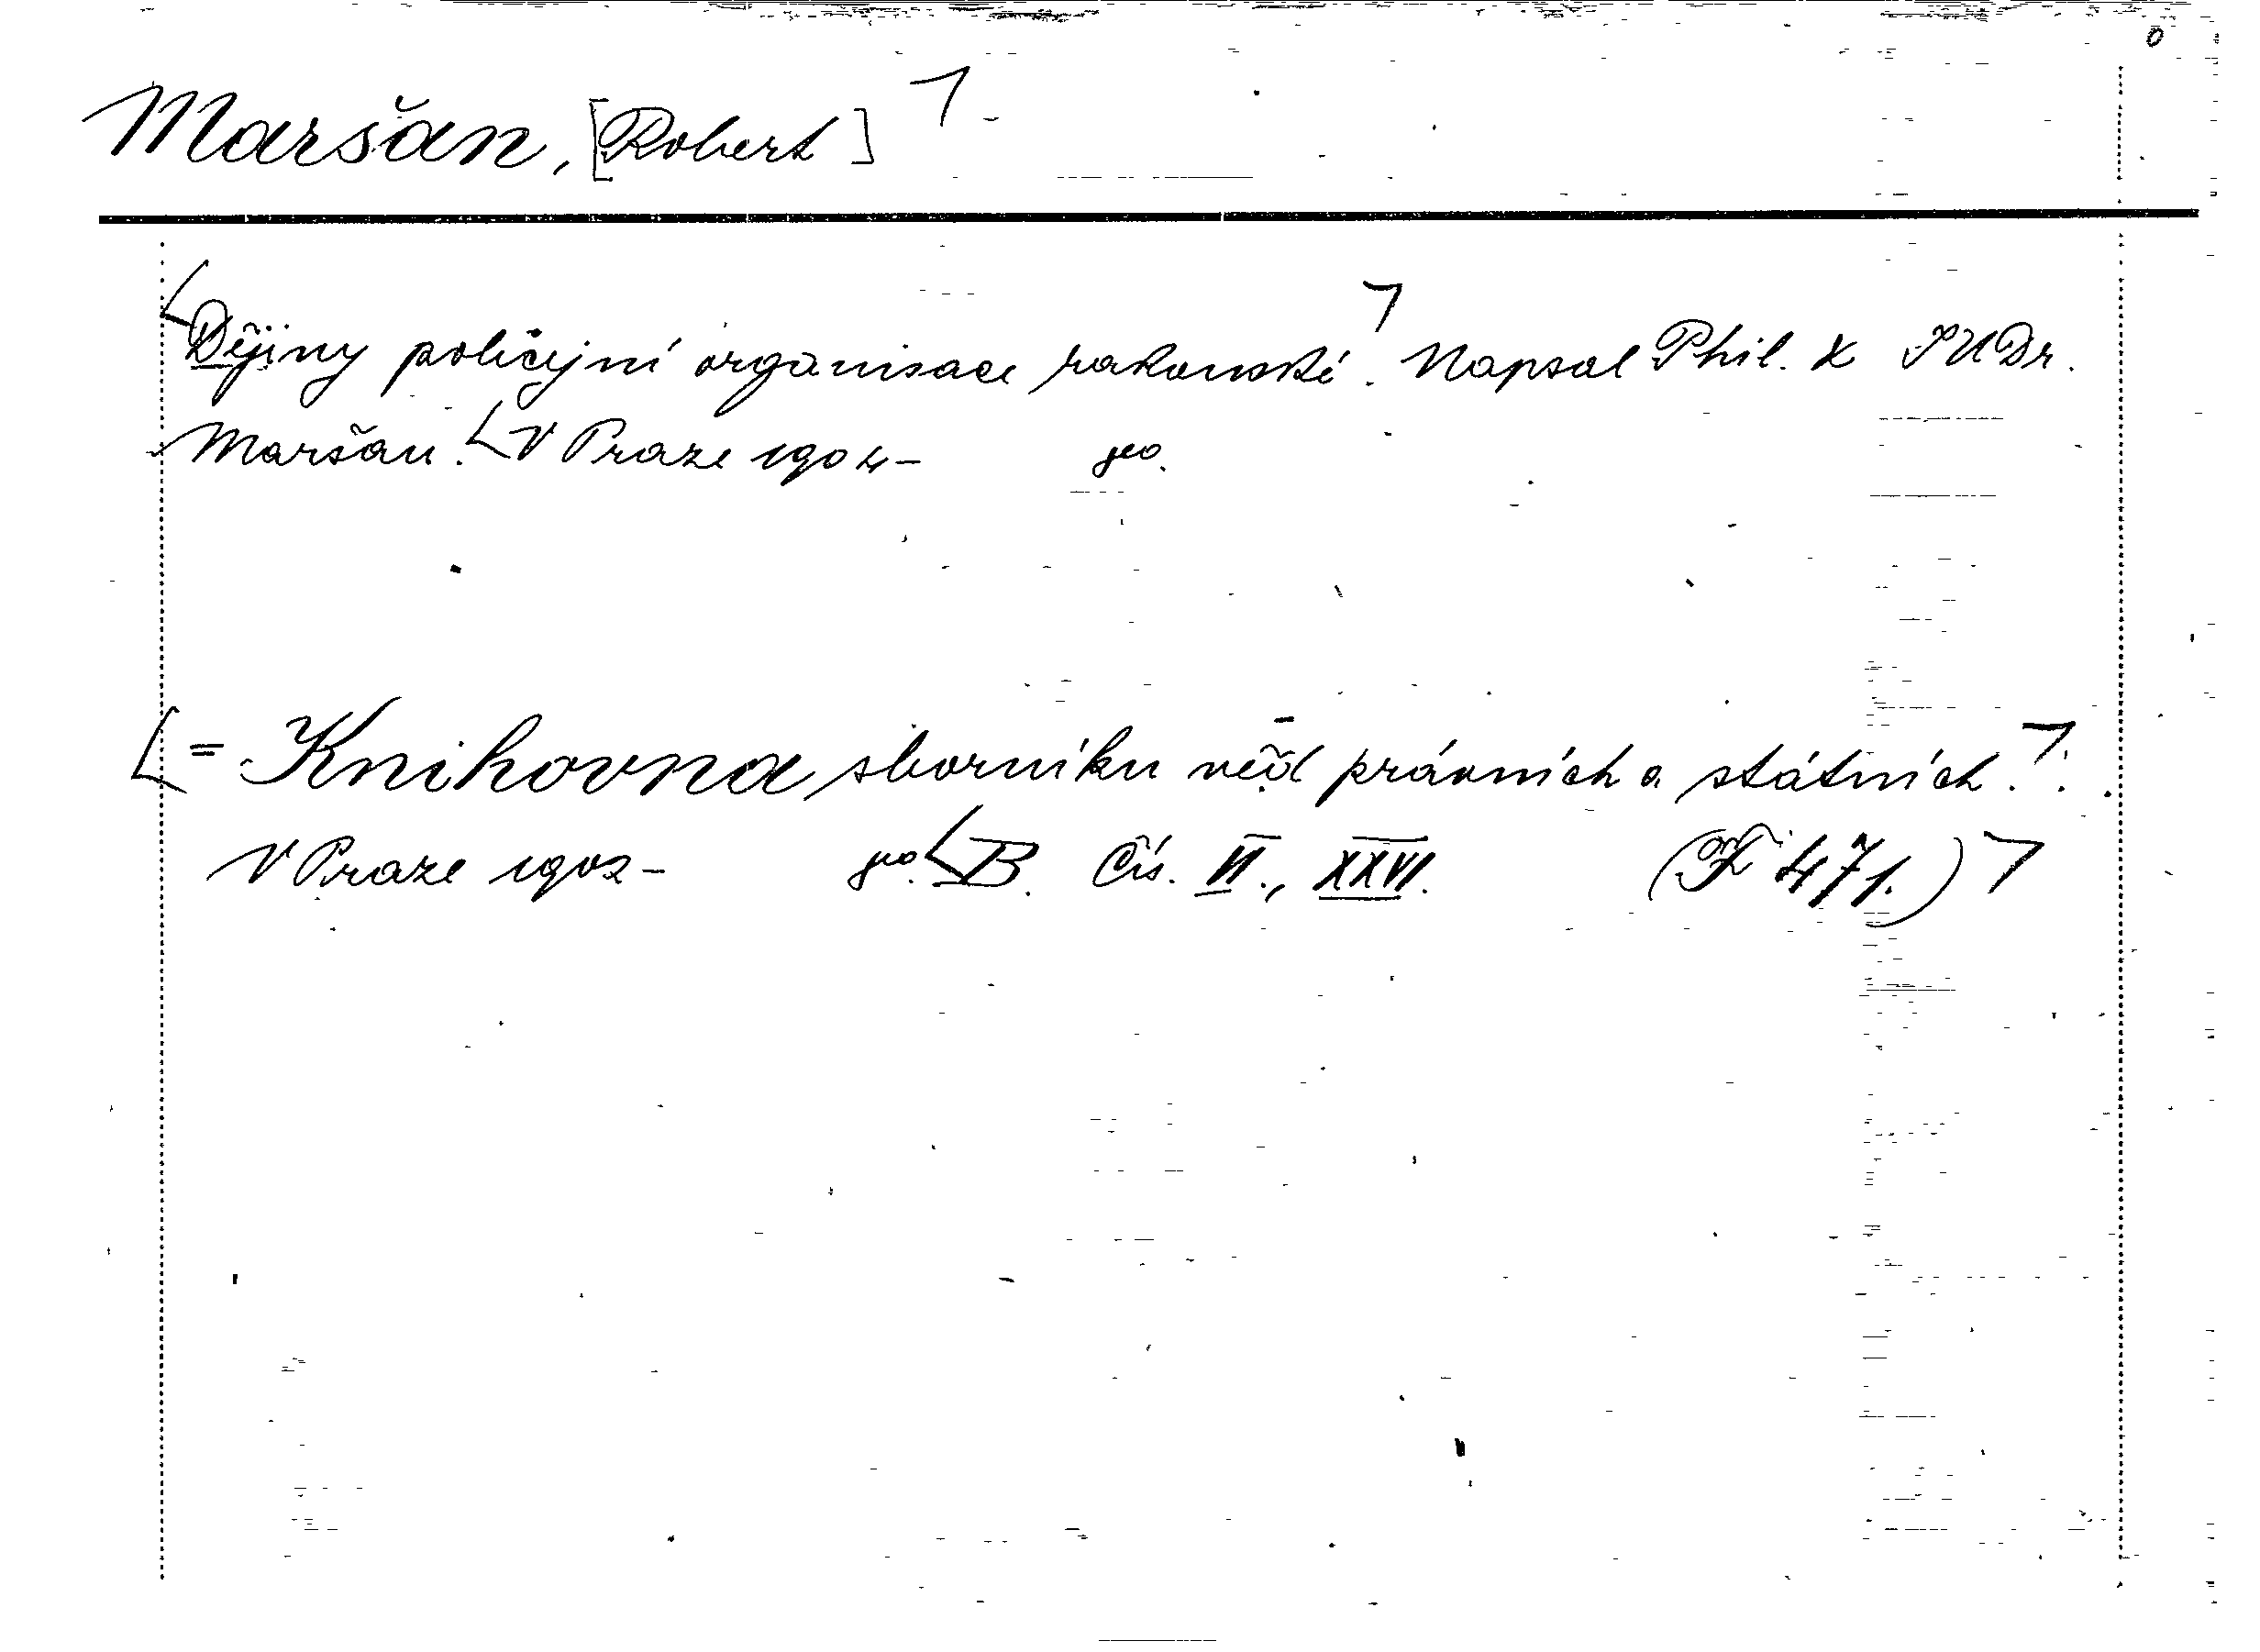 Maršan, [Robert]
Dějiny policejní organisace rakouské. Napsal Phil. & JUDr.
Maršan. V Praze 1904- 8vo.
= Knihovna sborníku věd právních a státních.
V Praze 1902- 8vo. B. Čís. VI., XXVI. (F 471.)